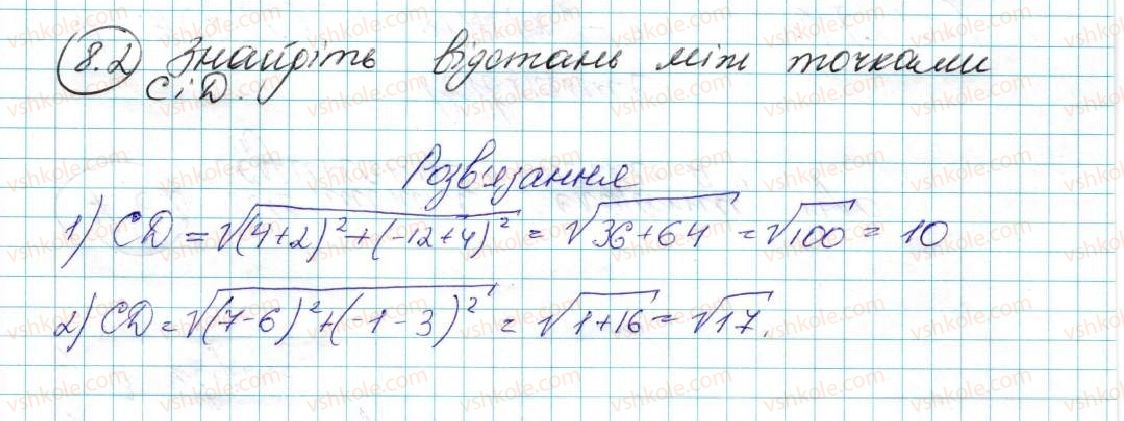 8.2 Знайдіть відстань між точками
C і D.
Розв'язання
1) CD = √((4+2)²+(-12+4)²) = √(36+64) = √100 = 10
2) CD = √((7-6)²+(-1-3)²) = √(1+16) = √17.